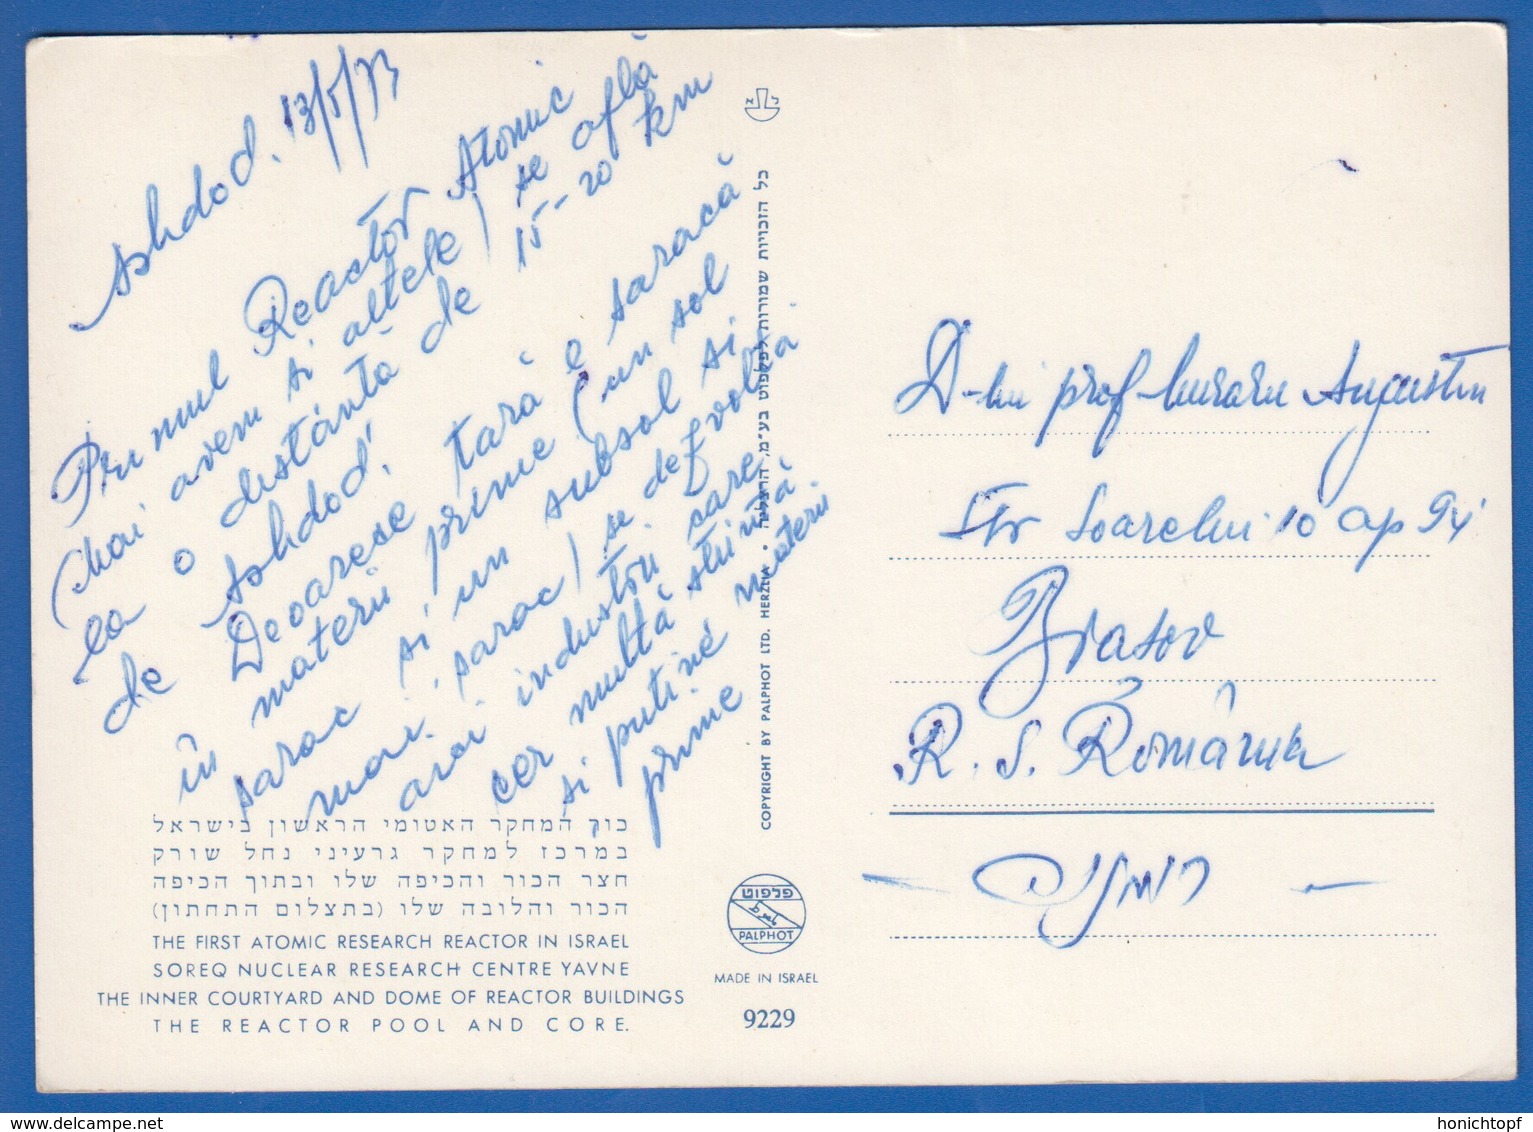 Ashdod. 13/5/73
Primul Reactor Atomic
(mai avem si altele) se află
la o distanță de 15-20 km
de Ashdod!
Deoarece țară e saracă
în materii prime (un sol
sarac si un subsol si
mai sarac) se dezvoltă
aici industrii care
cer multă stiință
si puține materii
prime
כור המחקר האטומי הראשון בישראל
במרכז למחקר גרעיני נחל שורק
חצר הכור והכיפה שלו ובתוך הכיפה
הכור והלובה שלו (בתצלום התחתון)
THE FIRST ATOMIC RESEARCH REACTOR IN ISRAEL
SOREQ NUCLEAR RESEARCH CENTRE YAVNE
THE INNER COURTYARD AND DOME OF REACTOR BUILDINGS
THE REACTOR POOL AND CORE.
COPYRIGHT BY PALPHOT LTD. HERZLIA • כל הזכויות שמורות לפלפוט בע"מ, הרצליה
פלפוט
PALPHOT
MADE IN ISRAEL
9229
D-lui prof. Muraru Augustin
Str Soarelui 10 ap 94
Brasov
R. S. România
רומניה
honichtopf